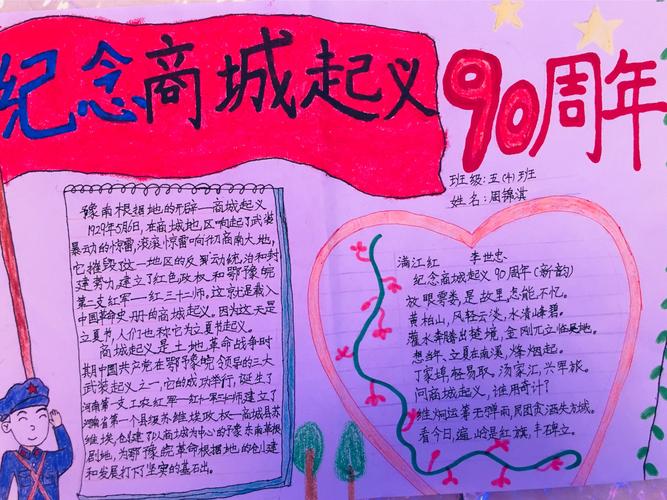 纪念商城起义90周年
班级:五(4)班
姓名:周锦淇
豫南根据地的开辟—商城起义
1929年5月6日,在商城地区响起了武装
暴动的惊雷,滚滚惊雷响彻商南大地,
它摧毁了这一地区的反动统治和封
建势力,建立了红色政权和鄂豫皖
第二支红军—红三十二师。这就是载入
中国革命史册的商城起义。因为这天是
立夏节,人们也称它为立夏节起义。
商城起义是土地革命战争时
期中国共产党在鄂豫皖领导的三大
武装起义之一,它的成功举行,诞生了
河南第一支工农红军—红三十二师建立了
河南省第一个县级苏维埃政权—商城县苏
维埃,创建了以商城为中心的豫东南革根
剧地,为鄂豫皖革命根据地的创建
和发展打下了坚实的基石出。
满江红 李世忠
纪念商城起义90周年(新韵)
放眼零娄,是故里,怎能不忆。
黄柏山,风轻云淡,水清峰碧。
灌水奔腾出楚境,金刚兀立临吴地。
想当年,立夏在南溪,烽烟起。
丁家埠,轻易取,汤家汇,兴军旅。
问商城起义,谁用奇计?
维炯运筹无弹雨,民团贲洒失方城。
看今日,遍岭是红旗,丰碑立。